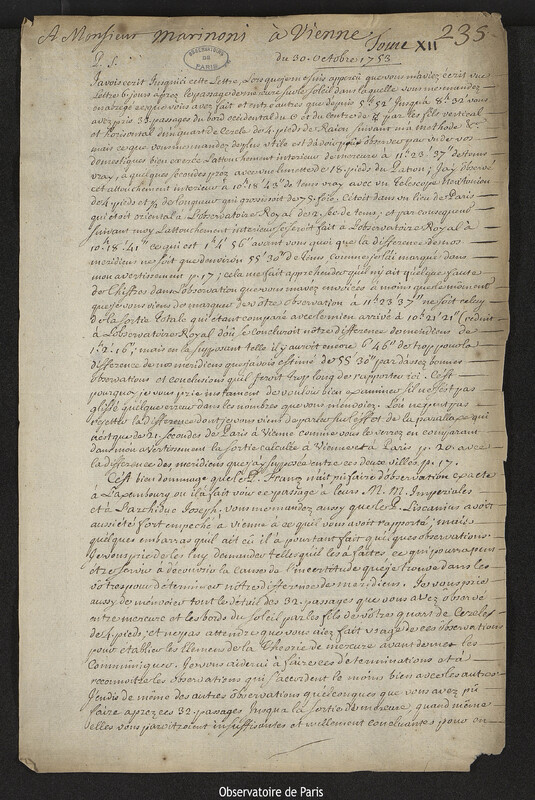 A Monsieur Marinoni à Vienne Tome XII 235.
OBSERVATOIRE DE PARIS
P. S. du 30. octobre 1753
J'avois écrit jusqu'ici cette Lettre, Lorsque je me suis aperçu que vous m'aviez écrit une
Lettre 6. jours après le passage de mercure sur le Soleil dans laquelle vous me mandez
en abrégé ce que vous avez fait et entre autres que depuis 5h 52' jusqu'à 8h 32' vous
avez pris 32. passages du bord occidental du ☉ et du centre de ☿ par les fils vertical
et horisontal d'un quart de Cercle de 4. pieds de Raion suivant ma methode &c.
mais ce que vous me mandez de plus utile est d'avoir fait observer par un de vos
domestiques bien exercé L'attouchement interieur de mercure à 11h 23' 37" de tems
vray, à quelques secondes près avec une lunette de 18. pieds du P. ; J'ay observé
cet attouchement interieur à 10h 18' 43" de tems vray avec un Telescope Newtonien
de 4. pieds et ½ de longueur qui grossissoit de 75. fois; c'étoit dans un lieu de Paris
qui étoit oriental à L'observatoire Royal de 2." de tems; et par consequent
suivant moy L'attouchement interieur se seroit fait à L'observatoire Royal à
10h 18' 41" ce qui est 1h 4' 56" avant vous quoi que la difference de nos
meridiens ne soit que d'environ 55' 30" de tems comme je l'ai marqué dans
mon avertissement p. 17; cela me fait apprehender qu'il n'y ait quelque faute
de Chiffres dans L'observation que vous m'avez envoiée à moins que le moment
que je vous viens de marquer de vôtre observation à 11h 23' 37" ne soit celuy
de la sortie totale qui étant comparé avec le mien arrivé à 10h 21' 21" (réduit
à L'observatoire Royal) d'où se concluroit nôtre difference de meridiens de
1h 2' 16"; mais en la supposant telle il y auroit encore 6' 46" de trop pour la
difference de nos meridiens que j'avois estimé de 55' 30" par d'assez bonnes
observations et conclusions qu'il seroit trop long de rapporter ici. C'est
pourquoi je vous prie instament de vouloir bien examiner s'il ne s'est pas
glissé quelque erreur dans les nombres que vous m'envoiez. L'on ne peut pas
rejetter la difference dont je vous viens de parler sur l'effet de la parallaxe qui
n'est que de 21. secondes de Paris à Vienne comme vous le verrez en comparant
dans mon avertissement la sortie calculée à Vienne et à Paris p. 20. avec
la difference des meridiens que j'ay supposée entre ces deux villes p. 17.
C'est bien dommage que le P. Franz n'ait pu faire d'observation exacte
à Laxembourg où il a fait voir ce passage à leurs M. M. Imperiales
et à L'archiduc Joseph. vous me mandez aussy que le P. Liscanius avoit
aussi été fort empeché à Vienne à ce qu'il vous avoit rapporté; mais
quelques embarras qu'il ait eu il a pourtant fait quelques observations.
Je vous prie de les luy demander telles qu'il les a faites, ce qui pourra peut
être servir à découvrir la cause de l'incertitude que je trouve dans les
vôtres pour déterminer nôtre difference de meridiens. Je vous prie
aussy de m'envoier tout le détail des 32. passages que vous avez observé
entre mercure et les bords du soleil par les fils de vôtre quart de Cercle
de 4. pieds, et ne pas attendre que vous aiez fait usage de ces observations
pour établir les élemens de la Theorie de mercure avant de me les
communiquer. Je vous aiderai à faire ces determinations et à
reconnoitre les observations qui s'accordent le moins bien avec les autres.
J'en dis de même des autres observations quelconques que vous avez pû
faire après ces 32. passages jusqu'à la sortie de mercure, quand même
elles vous paroitroient insuffisantes et nullement concluantes pour en
Observatoire de Paris